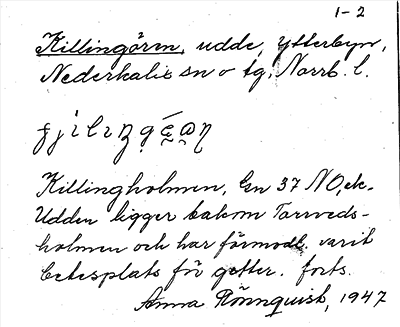 1-2
Killingören, udde, Ytterbyn,
Nederkalix sn o tg, Norrb. l.
Killingholmen, Gn 37 NO, ek.
Udden ligger bakom Torrveds-
holmen och har förmodl. varit
betesplats för getter. forts.
Anna Rönnquist, 1947